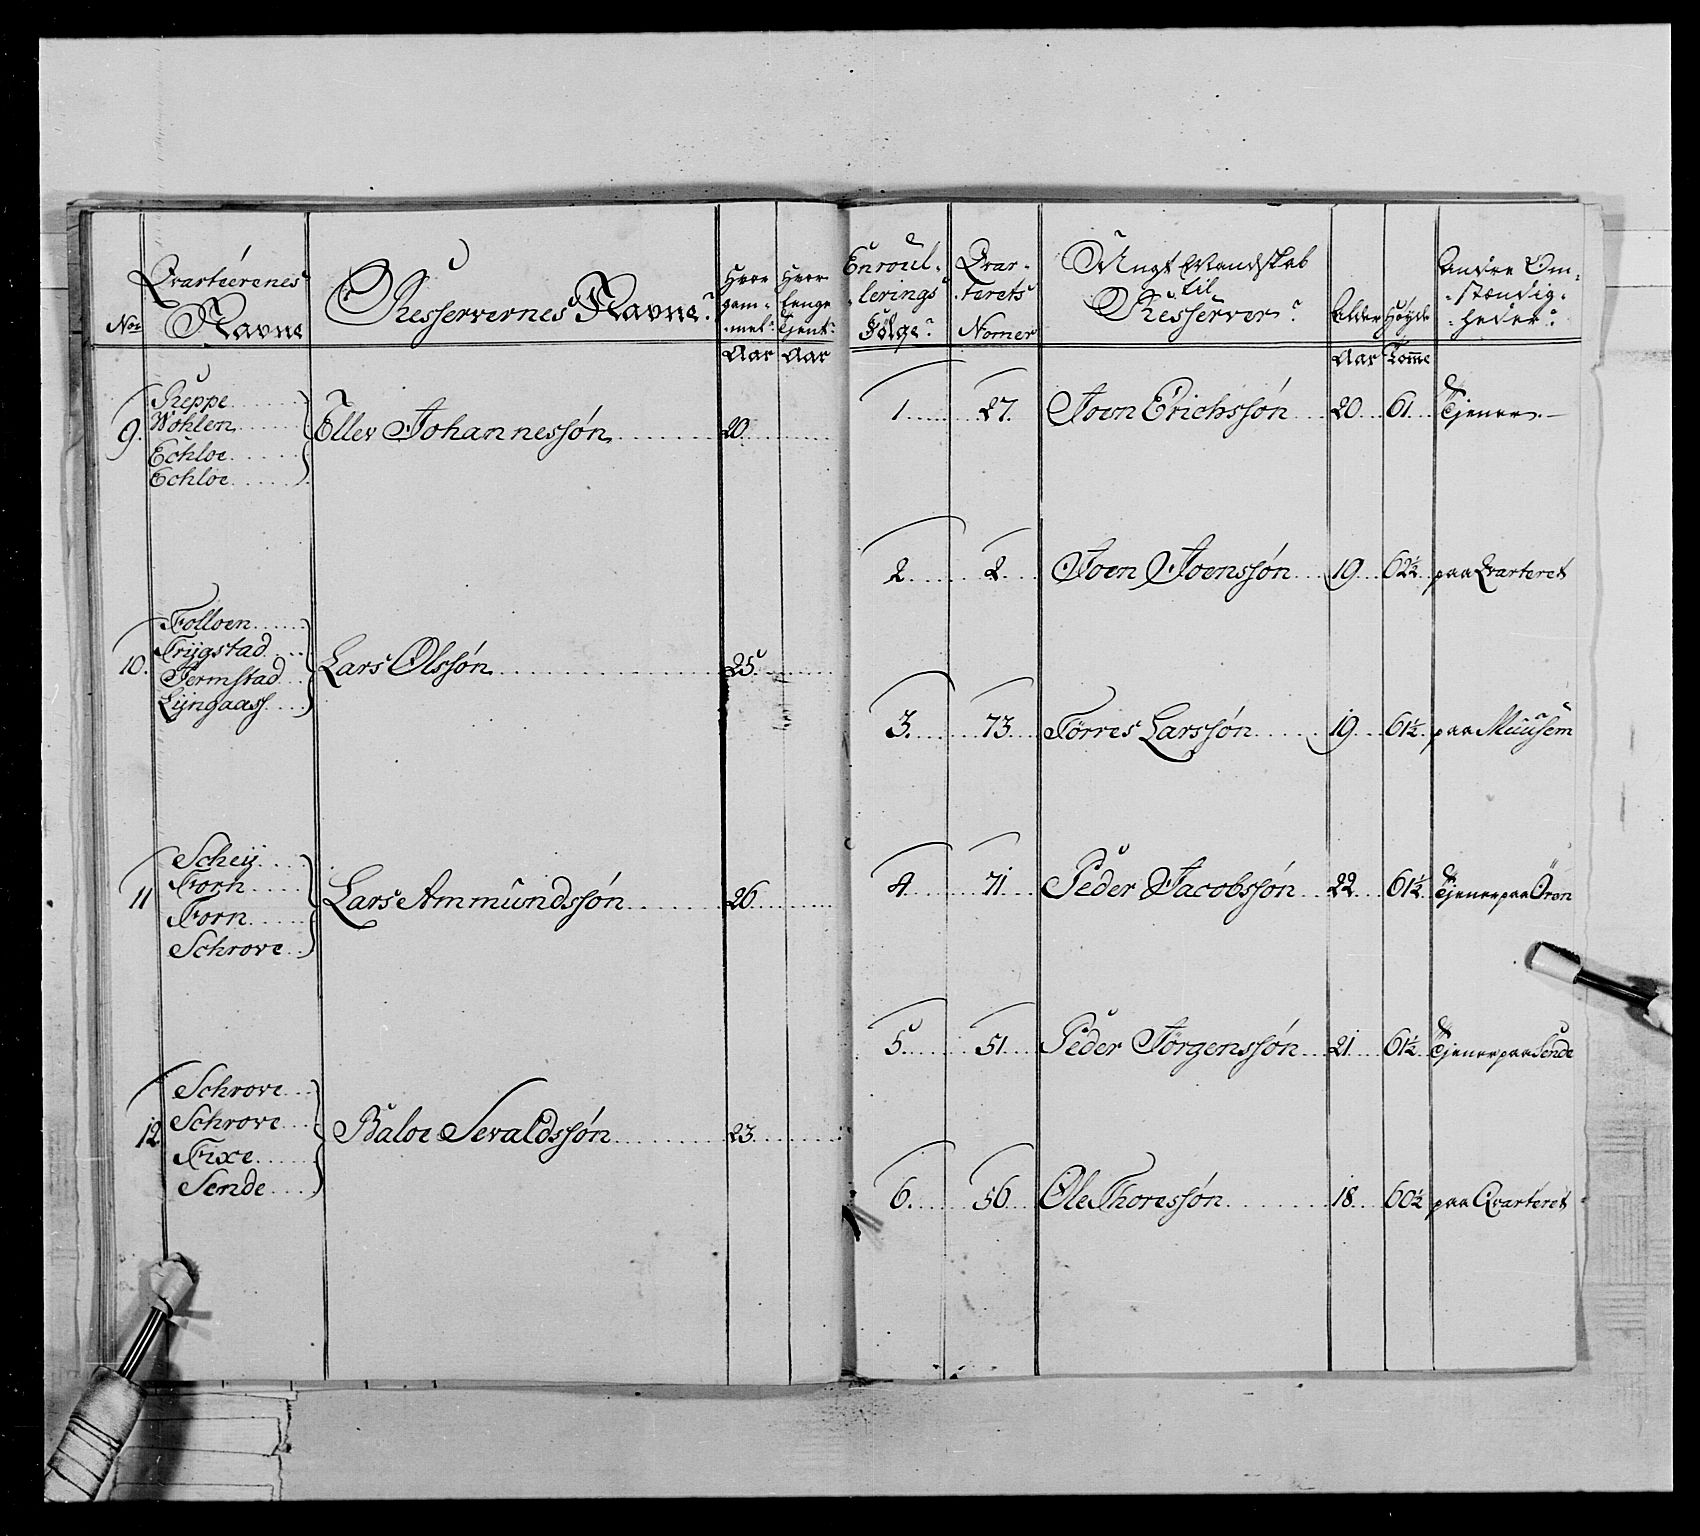 No:
Qvarteerenes
Navne
Resservernes Navne
Hvor
gam-
mel
Aar
Hvor
lenge
Tjent
Aar
9. Reppe
Wohlen
Echloe
Echloe
Ellev Johannessøn 20
10. Folloen
Trygstad
Fermstad
Lyngaass
Lars Olssøn 25
11 Scheij
Forn
Forn
Schrove
Lars Ammundssøn 26
12 Schrove
Schrove
Fixe
Sende
Baloe Sevaldssøn 23
Enroul-
lerings
Følge
Qvar-
terets
Nomer
Ungt Mandskab
til
Resserver
Alder
Aar
Høyde
Tomme
Andre Om-
stændig-
heder
1 27 Joen Erichssøn 20 61 Tjener
2 2 Joen Joenssøn 19 62½ paa Qvarteret
3. 73 Torres Larssøn 19 61½ paa Muusem
4 71 Peder Jacobssøn 22 61½ Tjener paa Ören
5 51 Peder Jörgenssøn 21 61½ Tjener paa Sende
6. 56 Ole Thoressøn 18 60½ paa Qvarteret